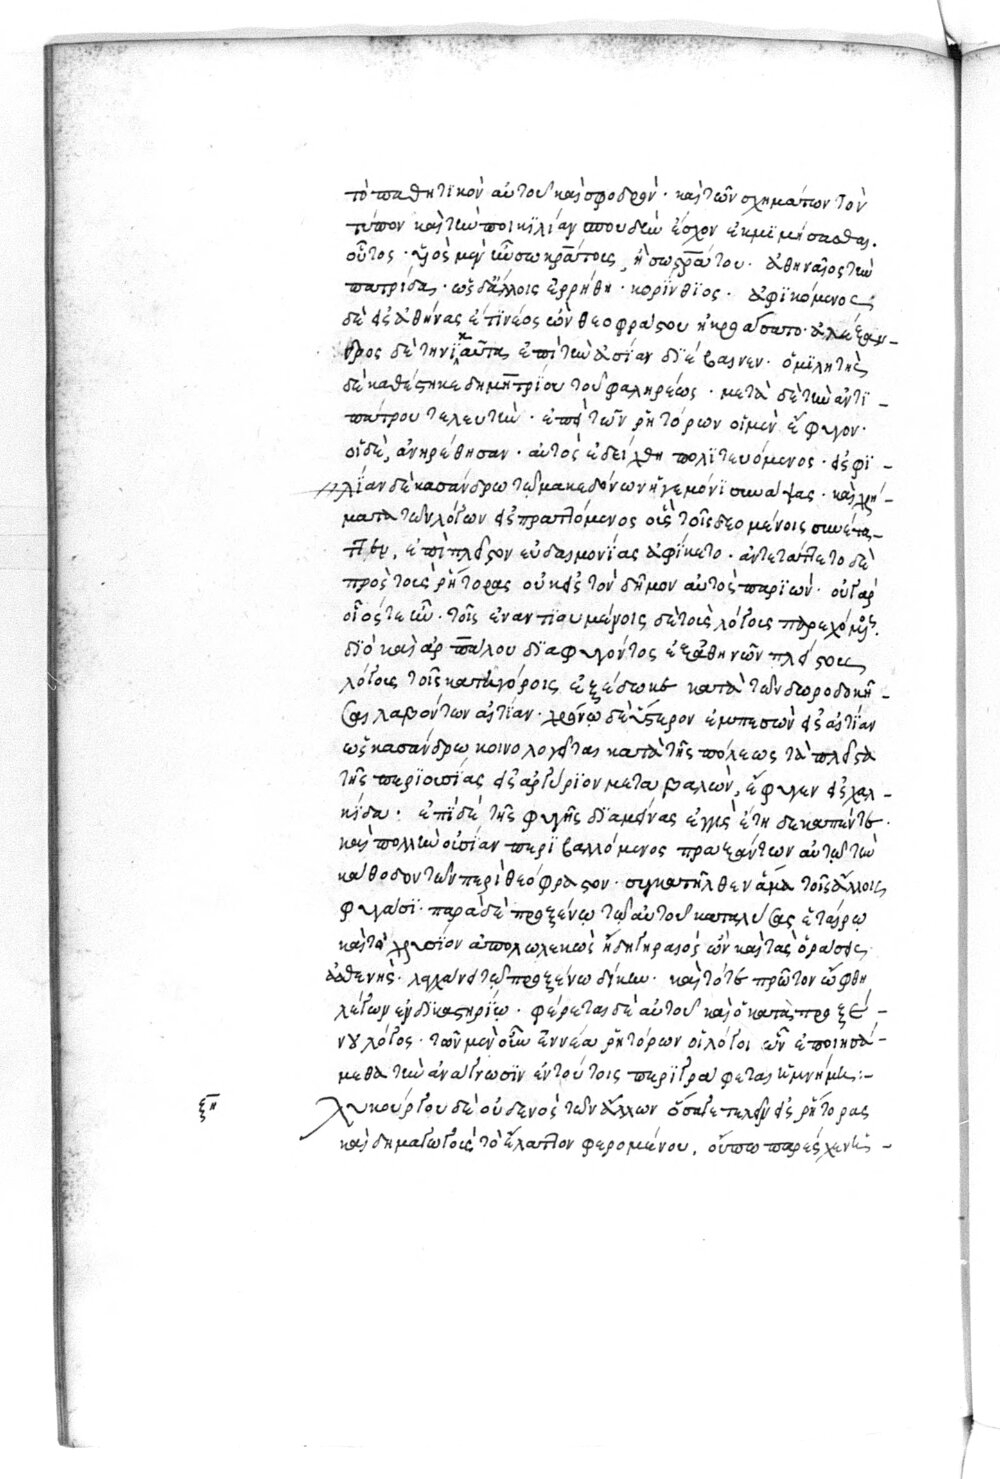 τὸ παθητικὸν αὐτοῦ καὶ σφοδρὸν · καὶ τῶν σχημάτων τὸν
τύπον καὶ τὴν ποικιλίαν σπουδὴν ἔσχον ἐκμιμήσασθαι.
οὗτος · υἱὸς μὲν ἦν σωκράτους, ἢ σωστράτου · ἀθηναῖος τὴν
πατρίδα · ὡς δ' ἄλλοις ἐρρήθη · κορίνθιος · ἀφικόμενος
δὲ εἰς ἀθήνας ἔτι νέος ὢν θεοφράστου ἠκροάσατο · ἀλέξαν-
δρος δὲ τηνικαῦτα ἐπὶ τὴν ἀσίαν διέβαινεν · ὁμιλητὴς
δὲ καθέστηκε δημητρίου τοῦ φαληρέως · μετὰ δὲ τὴν ἀντι-
πάτρου τελευτὴν · ἐπεὶ τῶν ῥητόρων οἱ μὲν ἔφυγον ·
οἱ δὲ, ἀνηρέθησαν · αὐτὸς ἐδείχθη πολιτευόμενος · εἰς φι-
λίαν δὲ κασάνδρω τῷ μακεδόνων ἡγεμόνι συνάψας · καὶ χρή-
ματα τῶν λόγων εἰσπραττόμενος οὓς τοῖς δεομένοις συνέτα-
ττεν, ἐπὶ πλεῖστον εὐδαιμονίας ἀφίκετο · ἀντετάττετο δὲ
πρὸς τοὺς ῥήτορας οὐκ εἰς τὸν δῆμον αὐτὸς παριών · οὐ γὰρ
οἷός τε ἦν · τοῖς ἐναντιουμένοις δὲ τοὺς λόγους παρεχόμενος.
διὸ καὶ ἁρπάλου διαφυγόντος ἐξ ἀθηνῶν πλείστους
λόγους τοῖς κατηγόροις ἐξέδωκε κατὰ τῶν δωροδοκή-
σας λαβόντων αἰτίαν · χρόνῳ δὲ ὕστερον ἐμπεσὼν εἰς αἰτίαν
ὡς κασάνδρω κοινολογεῖται κατὰ τῆς πόλεως τὰ πλεῖστα
τῆς περιουσίας εἰς ἀργύριον μεταβαλὼν, ἔφυγεν εἰς χαλ-
κίδα · ἐπὶ δὲ τῆς φυγῆς διαμείνας ἐγγὺς ἔτη δεκαπέντε ·
καὶ πολλὴν οὐσίαν περιβαλλόμενος πραξάντων αὐτῷ τὴν
κάθοδον τῶν περὶ θεόφραστον · συγκατῆλθεν ἅμα τοῖς ἄλλοις
φυγάσι · παρὰ δὲ προξένῳ τῷ αὐτοῦ καταλύσας ἑταίρῳ
καὶ τὸ χρυσίον ἀπολωλεκὼς ἤδη γηραιὸς ὢν καὶ τὰς ὁράσεις
ἀσθενής · λαγχάνει τῷ προξένω δίκην · καὶ τότε πρῶτον ὤφθη
λέγων ἐν δικαστηρίῳ · φέρεται δὲ αὐτοῦ καὶ ὁ κατὰ προξέ-
νου λόγος · τῶν μὲν οὖν ἐννέα ῥητόρων οἱ λόγοι ὧν ἐποιησά-
μεθα τὴν ἀνάγνωσιν ἐν τούτοις περιγράφεται ἡ μνήμη :-
ξη λυκούργου δὲ οὐδενὸς τῶν ἄλλων ὅσα γε τελεῖν εἰς ῥήτορας
καὶ δημαγωγοὺς τὸ ἔλαττον φερομένου, οὔπω παρέσχεν ἡμ-